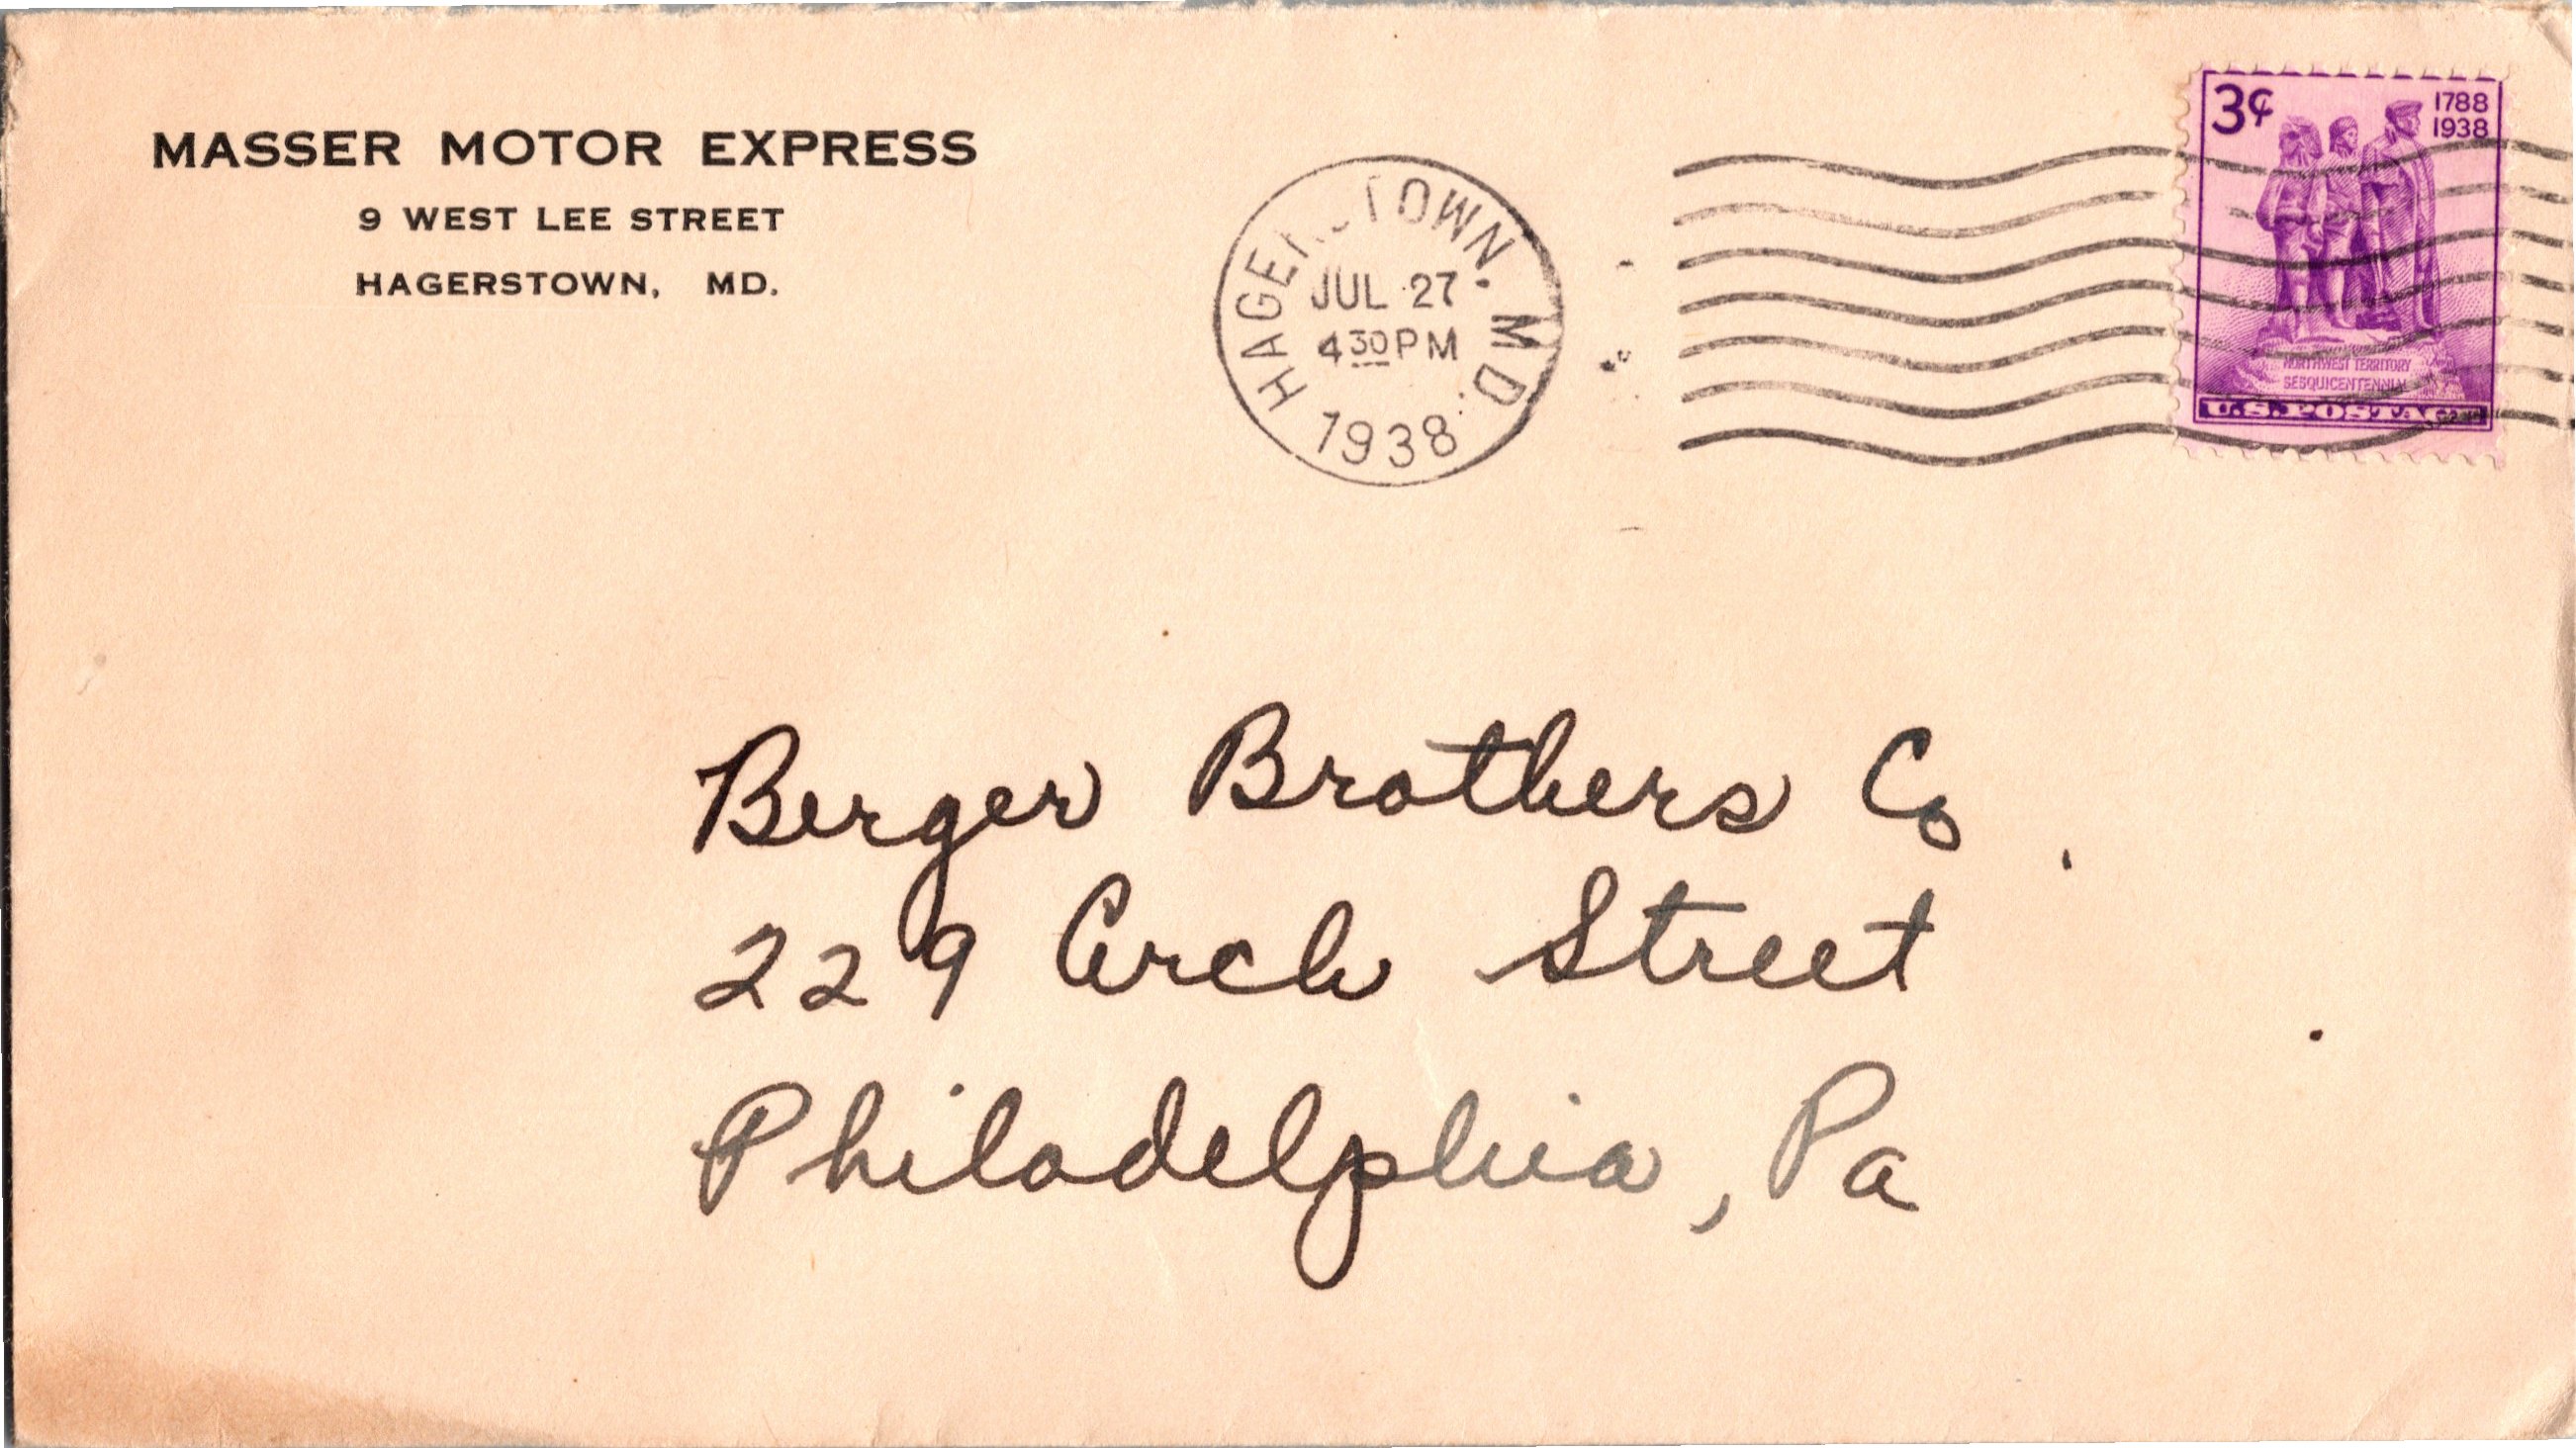 MASSER MOTOR EXPRESS
9 WEST LEE STREET
HAGERSTOWN, MD.
HAGERSTOWN. MD.
JUL 27
4 30 PM
1938
3¢
1788
1938
NORTHWEST TERRITORY
SESQUICENTENNIAL
U.S. POSTAGE
Berger Brothers Co.
229 Arch Street
Philadelphia, Pa